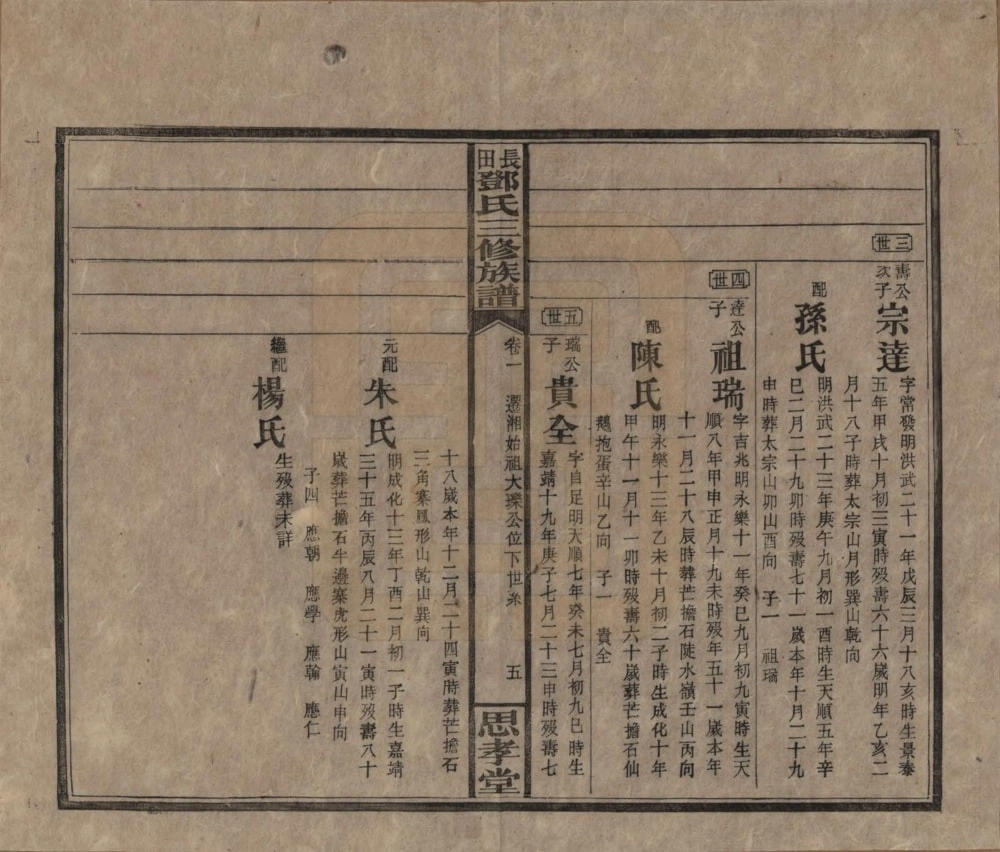 三世
壽公次子
宗達
字常發明洪武二十一年戊辰三月十八亥時生景泰
五年甲戌十月初三寅時殁壽六十六歲明年乙亥二
月十八子時葬太宗山月形巽山乾向
配
孫氏
明洪武二十三年庚午九月初一酉時生天順五年辛
巳二月二十九卯時殁壽七十一歲本年十月二十九
申時葬太宗山卯山酉向 子一 祖瑞
四世
達公子
祖瑞
字吉兆明永樂十一年癸巳九月初九寅時生天
順八年甲申正月十九未時殁年五十一歲本年
十一月二十八辰時葬芒擔石陡水嶺壬山丙向
配
陳氏
明永樂十三年乙未十月初二子時生成化十年
甲午十一月十一卯時殁壽六十歲葬芒擔石仙
鵝抱蛋辛山乙向 子一 貴全
五世
瑞公子
貴全
字自足明天順七年癸未七月初九巳時生
嘉靖十九年庚子七月二十三申時殁壽七
長田鄧氏三修族譜
卷一 遷湘始祖大琛公位下世系 五
思孝堂
十八歲本年十二月二十四寅時葬芒擔石
三角寨鳳形山乾山巽向
元配
朱氏
明成化十三年丁酉二月初一子時生嘉靖
三十五年丙辰八月二十一寅時殁壽八十
歲葬芒擔石半邊寨虎形山寅山申向
子四 應朝 應學 應翰 應仁
繼配
楊氏
生殁葬未詳